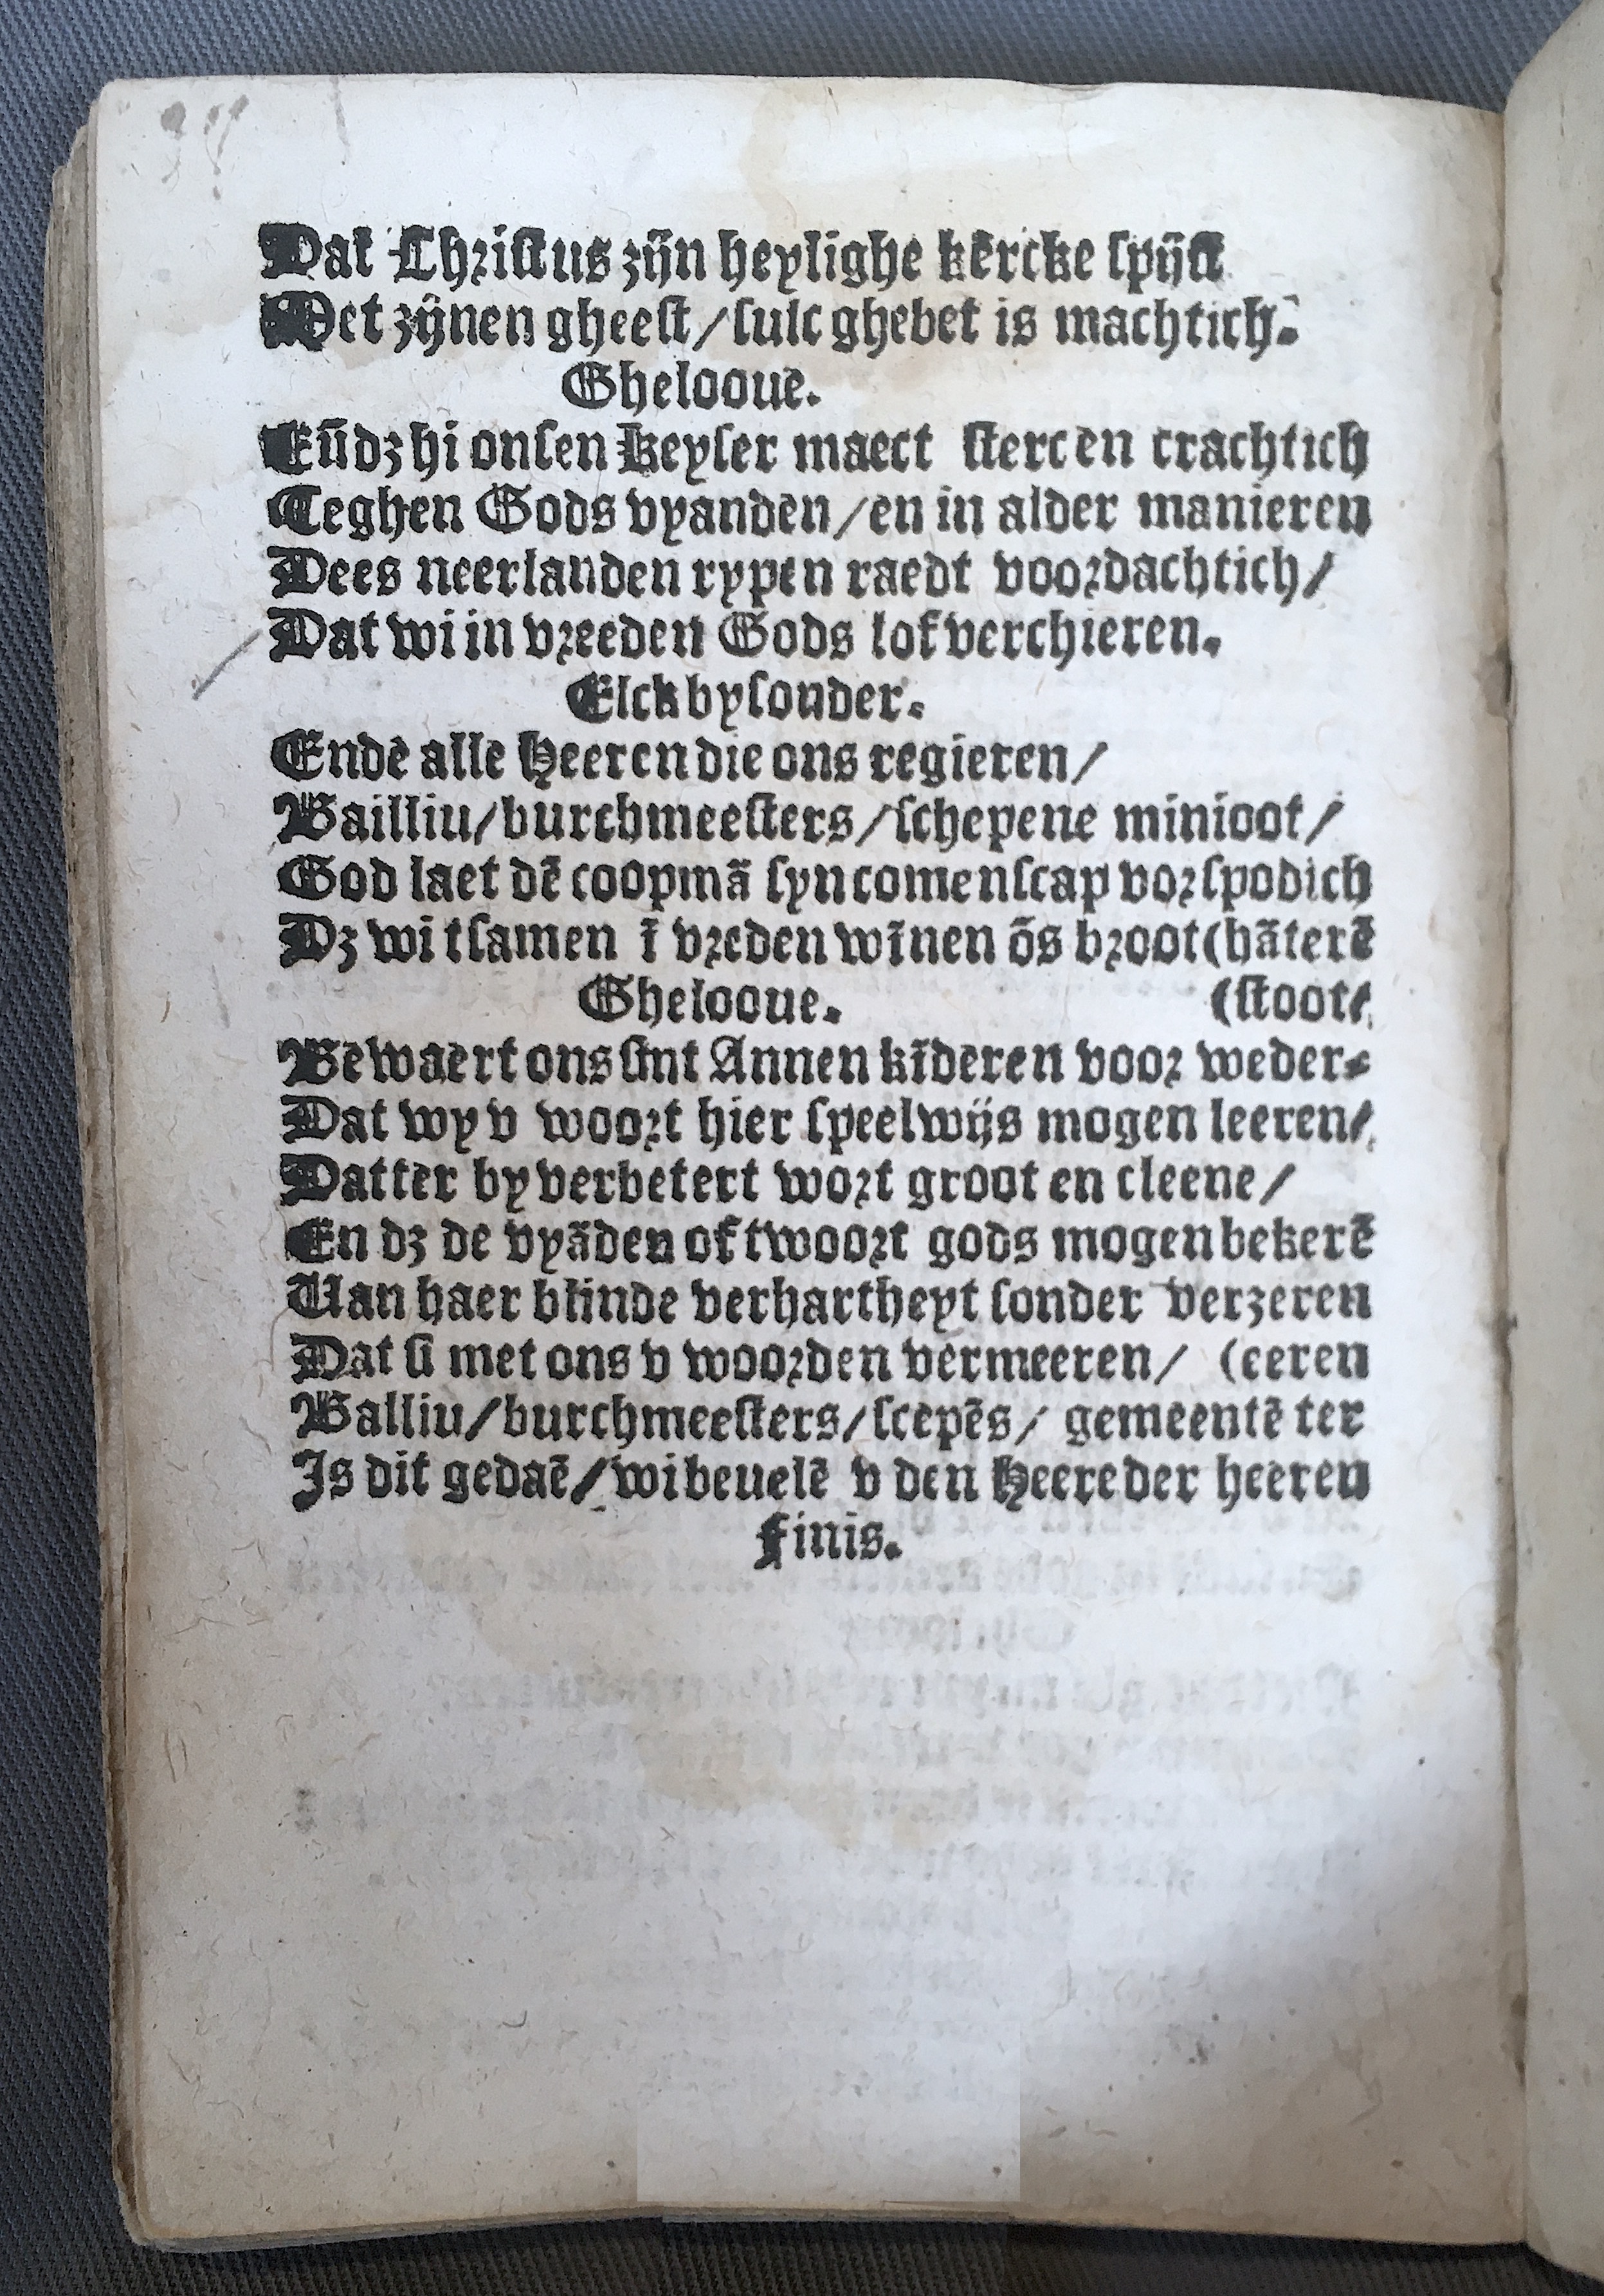 Dat Christus zijn heylighe kercke spijst
Met zijnen gheest/sulc ghebet is machtich.
Gheloove.
Eñ dz hi onsen Keyser maect sterc en crachtich
Teghen Gods vyanden/en in alder manieren
Dees neerlanden rypen raedt voordachtich/
Dat wi in vreeden Gods lof verchieren.
Elck bysonder.
Ende alle Heeren die ons regieren/
Bailliu/burchmeesters/schepene minioot/
God laet dē coopmā syn comenscap vorspodich
Dz wi tsamen ī vreden wīnen ōs broot (hāterē
Ghelooue. (stoot/
Bewaert ons sint Annen kīderen voor weder-
Dat wy v woort hier speelwijs mogen leeren/
Datter by verbetert wort groot en cleene/
En dz de vyāden of twoort gods mogen bekerē
Uan haer blinde verhartheyt sonder verzeren
Dat si met ons v woorden vermeeren/ (eeren
Balliu/burchmeesters/scepēs/ gemeentē ter
Is dit gedaē/wi beuelē v den Heere der heeren
Finis.